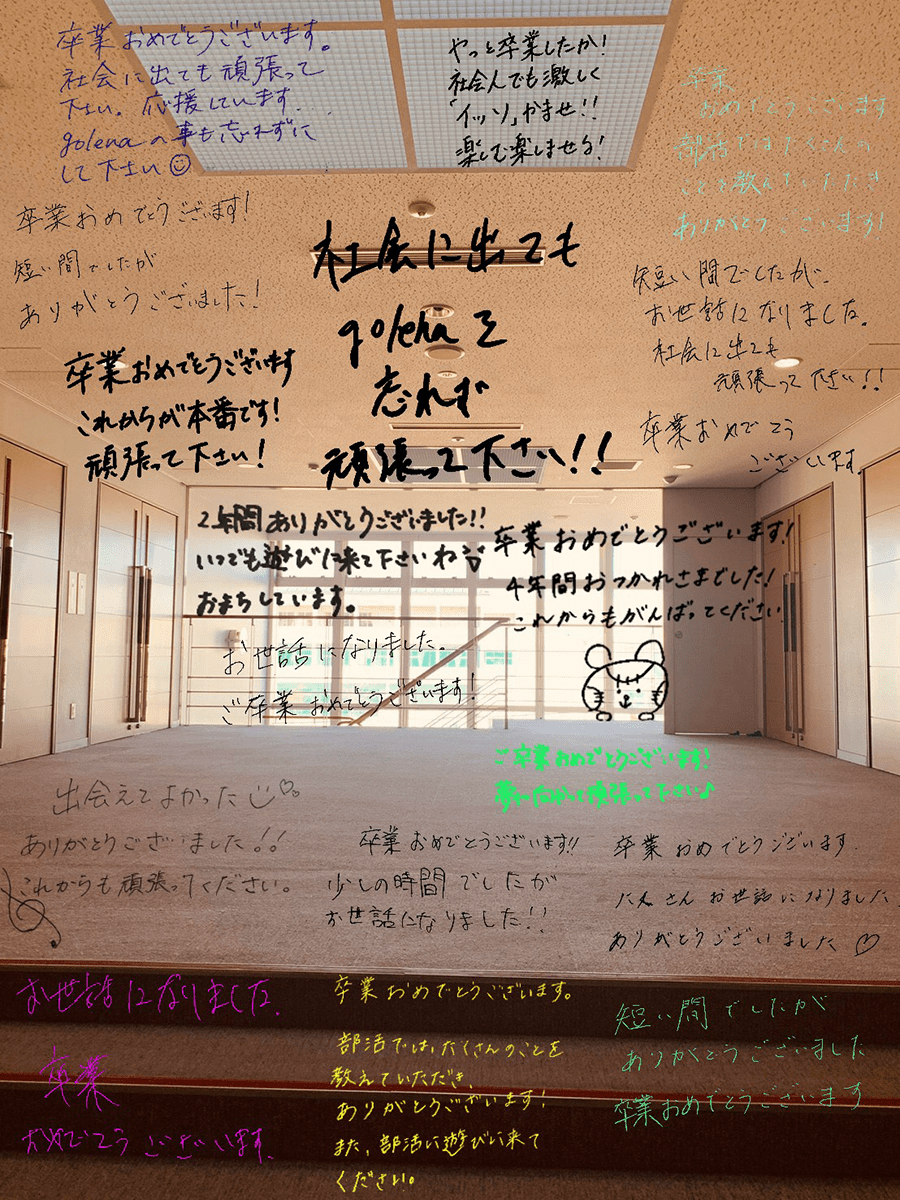 卒業おめでとうございます。
社会に出ても頑張って
下さい。応援しています。
golenaの事も忘れずに
して下さい
やっと卒業したか!
社会人でも激しく
「イッソ」かませ!!
楽しむ楽しませる!
卒業
おめでとうございます
部活ではたくさんの
ことを教えていただき
ありがとうございます!
卒業おめでとうございます!
短い間でしたが
ありがとうございました!
社会に出ても
golenaを
忘れず
頑張って下さい!!
短い間でしたが、
お世話になりました。
社会に出ても
頑張って下さい!!
卒業おめでとう
ございます。
卒業おめでとうございます
これからが本番です!
頑張って下さい!
2年間ありがとうございました!!
いつでも遊びに来て下さいね
おまちしています。
卒業おめでとうございます!
4年間おつかれさまでした!
これからもがんばってください
お世話になりました。
ご卒業おめでとうございます!
ご卒業おめでとうございます!
夢に向かって頑張って下さい♪
出会えてよかった
ありがとうございました!!
これからも頑張ってください。
卒業おめでとうございます!!
少しの時間でしたが
お世話になりました!!
卒業おめでとうございます
さんお世話になりました
ありがとうございました♡
お世話になりました。
卒業
おめでとうございます。
卒業おめでとうございます。
部活では、たくさんのことを
教えていただき、
ありがとうございます!
また、部活に遊びに来て
ください。
短い間でしたが
ありがとうございました
卒業おめでとうございます